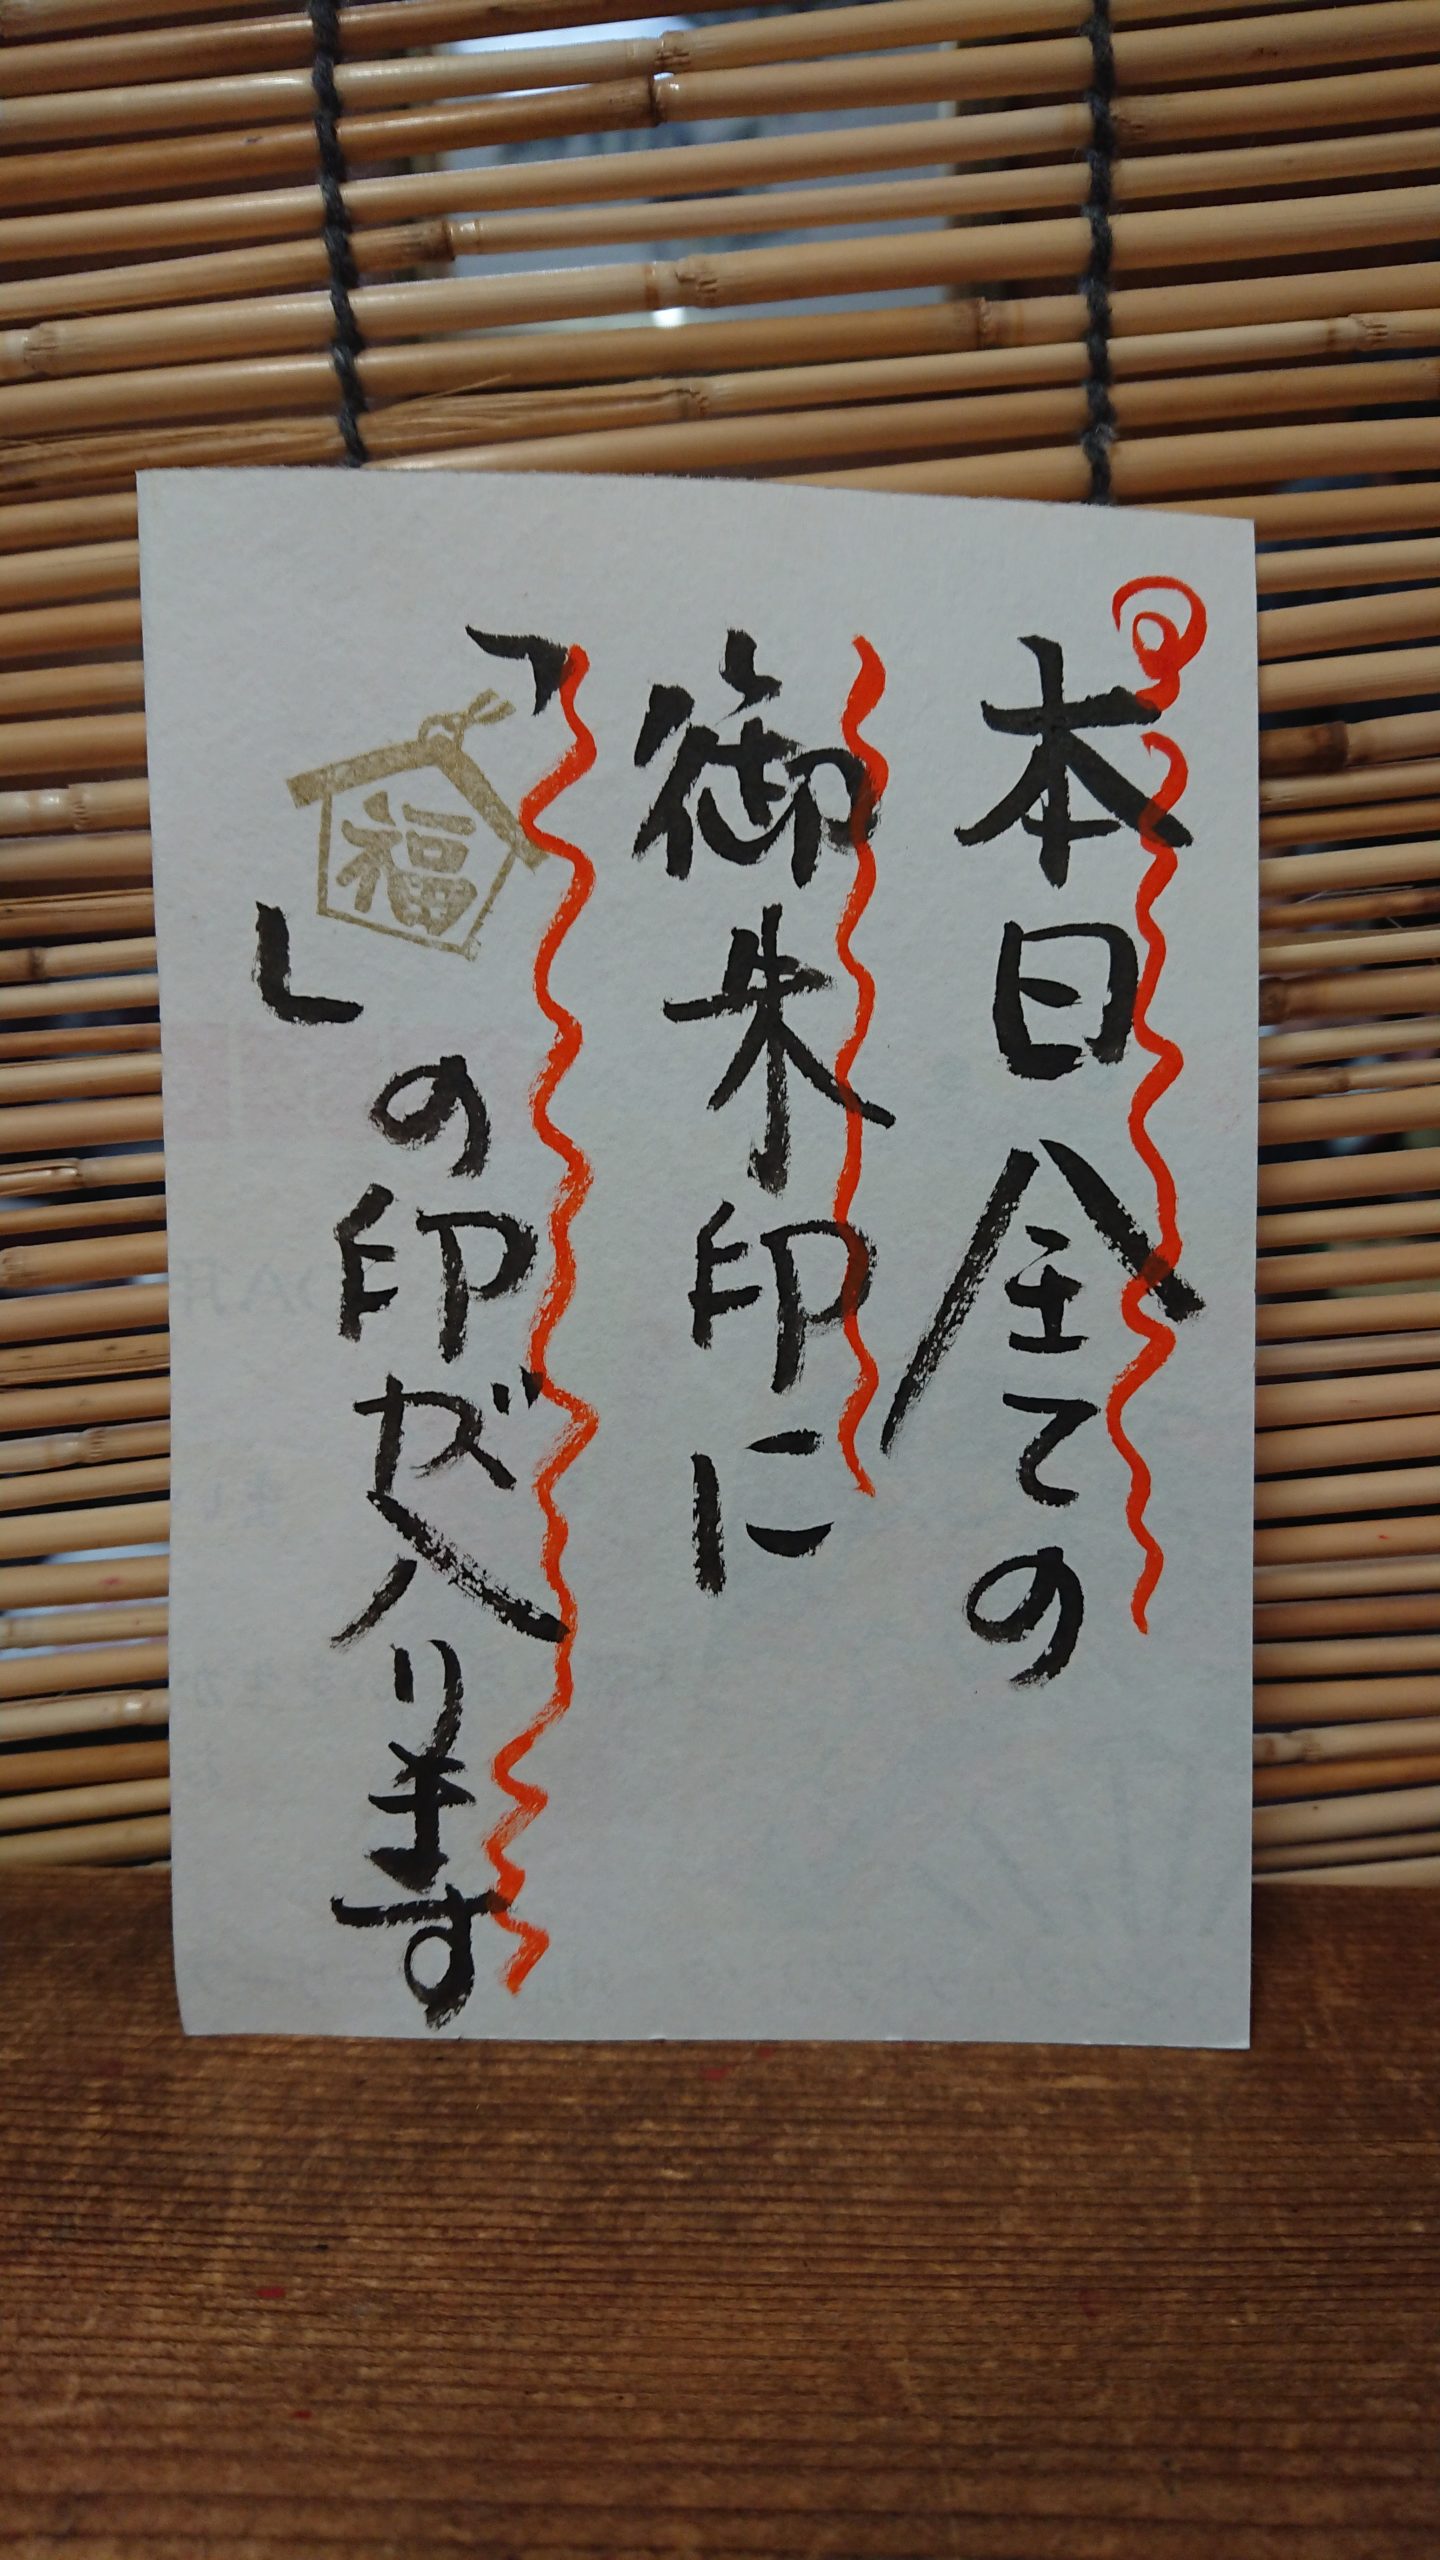 本日全ての
御朱印に
「福」の印が入ります